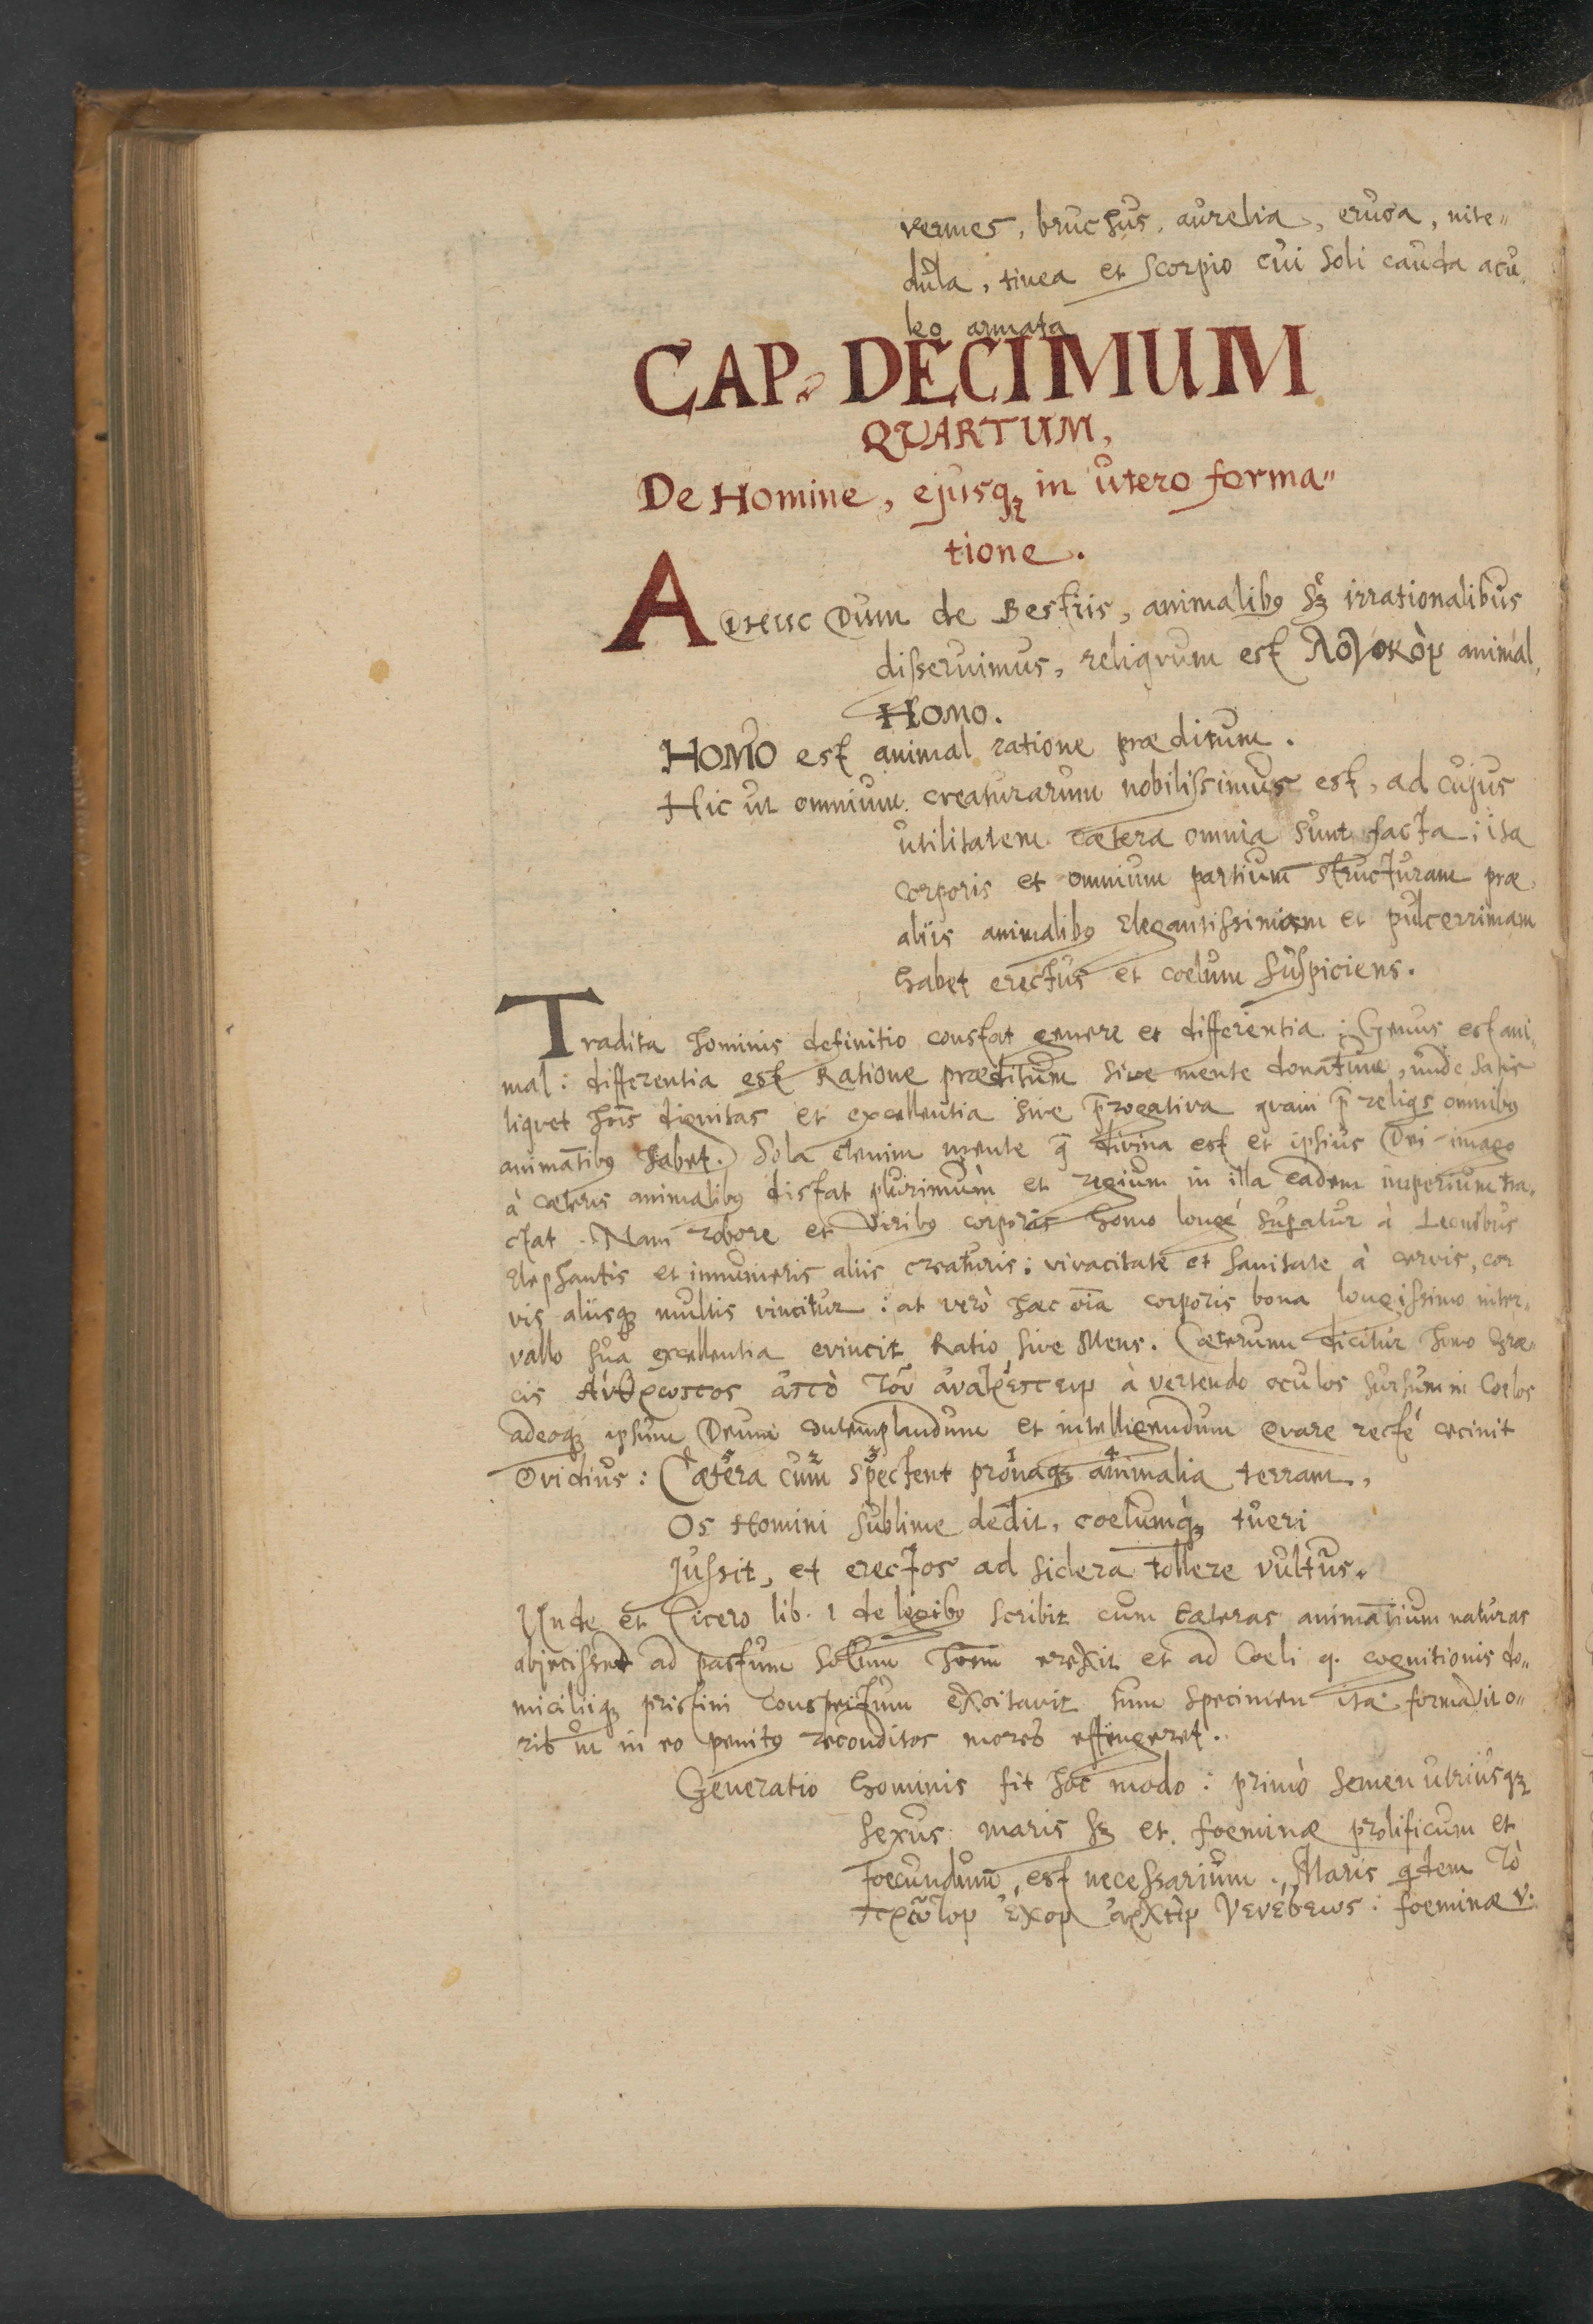 vermes, bruchus, aurelia, eruca, nite„
dula, tinea et Scorpio cui soli cauda acu„
leo armata
CAP. DECIMUM
QUARTUM,
De Homine, ejusq₃ in utero forma„
tione.
ADHUC Dum de Bestiis, animalibꝰ sꝫ irrationalibus
disseruimus, reliqvum est λογικὸν animal,
HOMO.
HOMO est animal ratione præditum.
Hic ut omnium creaturarum nobilissimus est, ad cujus
utilitatem cætera omnia sunt facta: ita
corporis et omnium partium structuram præ
aliis animalibꝰ elegantissimam et pulcerrimam
habet erectus et coelum suspiciens.
Tradita hominis definitio constat genere et differentia: Genus est ani„
mal: differentia est Ratione præditum sive mente donatum, unde satis
liqvet hōis dignitas et excellentia sive p̄rogativa qvam p̄ reliqs omnibꝰ
animātibꝰ habet. Sola etenim mente q̄ divina est et ipsius Dei imago
à cæteris animalibꝰ distat plurimùm et regium in illa eadem imperium tra„
ctat. Nam robore et viribꝰ corporis homo longé supatur à Leonibus
Elephantis et innumeris aliis creaturis: vivacitate et sanitate à cervis, cor
vis aliisqꝫ multis vincitur: at verò hæc oīa corporis bona longissimo inter„
vallo sua excellentia evincit Ratio sive Mens. Cæterum dicitur homo Græ„
cis ἄνθρωπος ἀπὸ τοῦ ἀνατρέπειν à vertendo oculos sursum in Coelos
adeoqꝫ ipsum Deum contemplandum et intelligendum qvare recté cecinit
Ovidius: Cætera cum spectent pronaqꝫ animalia terram,
Os Homini sublime dedit, coelumqꝫ tueri
Jussit, et erectos ad sidera tollere vultus.
Unde et Cicero lib. 1 de legibꝰ scribit cum cæteras animātium naturas
abjecisset ad pastum solum hōem erexit et ad Coeli q. cognitionis do„
miciliiqꝫ pristini conspectum excitavit tum specimen ita formavit o„
ris ut in eo penitꝰ reconditos mores effingeret.
Generatio hominis fit hoc modo: primò semen utriusqꝫ
sexus maris sꝫ et foeminæ prolificum et
foecundum, est necessarium. Maris qdem τὸ
πρῶτον ἔχον ἀρχὴν γενέσεως: foeminæ v.